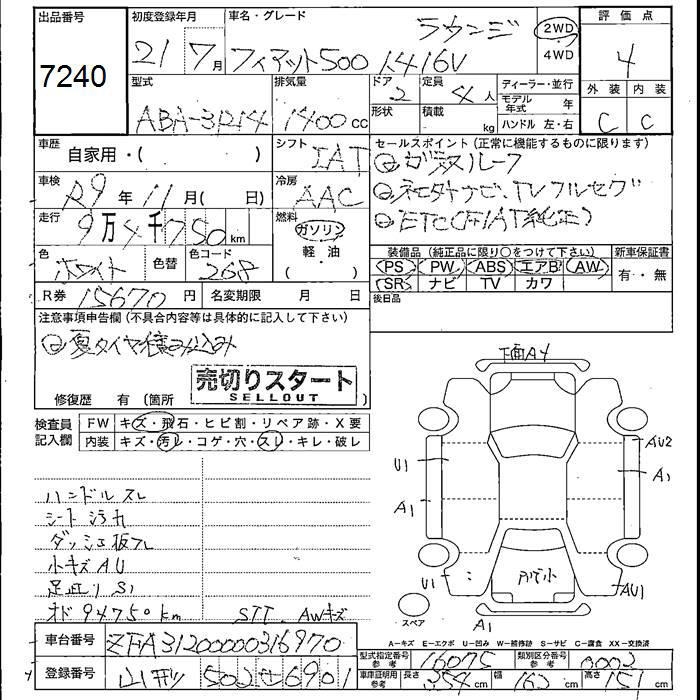 出品番号
7240
初度登録年月
21 7月
車名・グレード
ラウンジ
フィアット500 1.4 16V
2WD
4WD
評価点
4
外装 内装
C C
型式
ABA-31214
排気量
1400 cc
ドア
2
形状
定員
4 人
積載
kg
ディーラー・並行
モデル年式 年
ハンドル 左・右
車歴
自家用・( )
シフト
IAT
車検
R9 年 11 月( 日)
冷房
AAC
走行
9万4千750 km
燃料
ガソリン
軽油
( )
色
ホワイト
色替
色コード
268
R券 15670 円
名変期限 月 日
セールスポイント (正常に機能するものに限ります)
ガラスルーフ
社外ナビ、TVフルセグ
ETC(FIAT純正)
装備品 (純正品に限り○をつけて下さい)
新車保証書
PS PW ABS エアB AW
SR ナビ TV カワ
有・無
後日品
注意事項申告欄 (不具合内容等は具体的に記入して下さい)
夏タイヤ積み込み
修復歴 有 (箇所 )
売切りスタート
SELLOUT
検査員記入欄
FW キズ・飛石・ヒビ割・リペア跡・X要
内装 キズ・汚レ・コゲ・穴・スレ・キレ・破レ
ハンドルスレ
シート汚れ
ダッシュ板スレ
小キズAU
足廻りS1
オド94750km
STT、AWキズ
下面A4
U1
A1
U1
AU2
A1
AU1
A1
スペア
A-キズ E-エクボ U-凹み W-補修跡 S-サビ C-腐食 XX-交換済
車台番号 ZFA31200000316970
型式指定番号 参考 16075
類別区分番号 参考 0003
登録番号 502 せ 6901
車庫証明用 参考 長さ 354 cm 幅 162 cm 高さ 151 cm